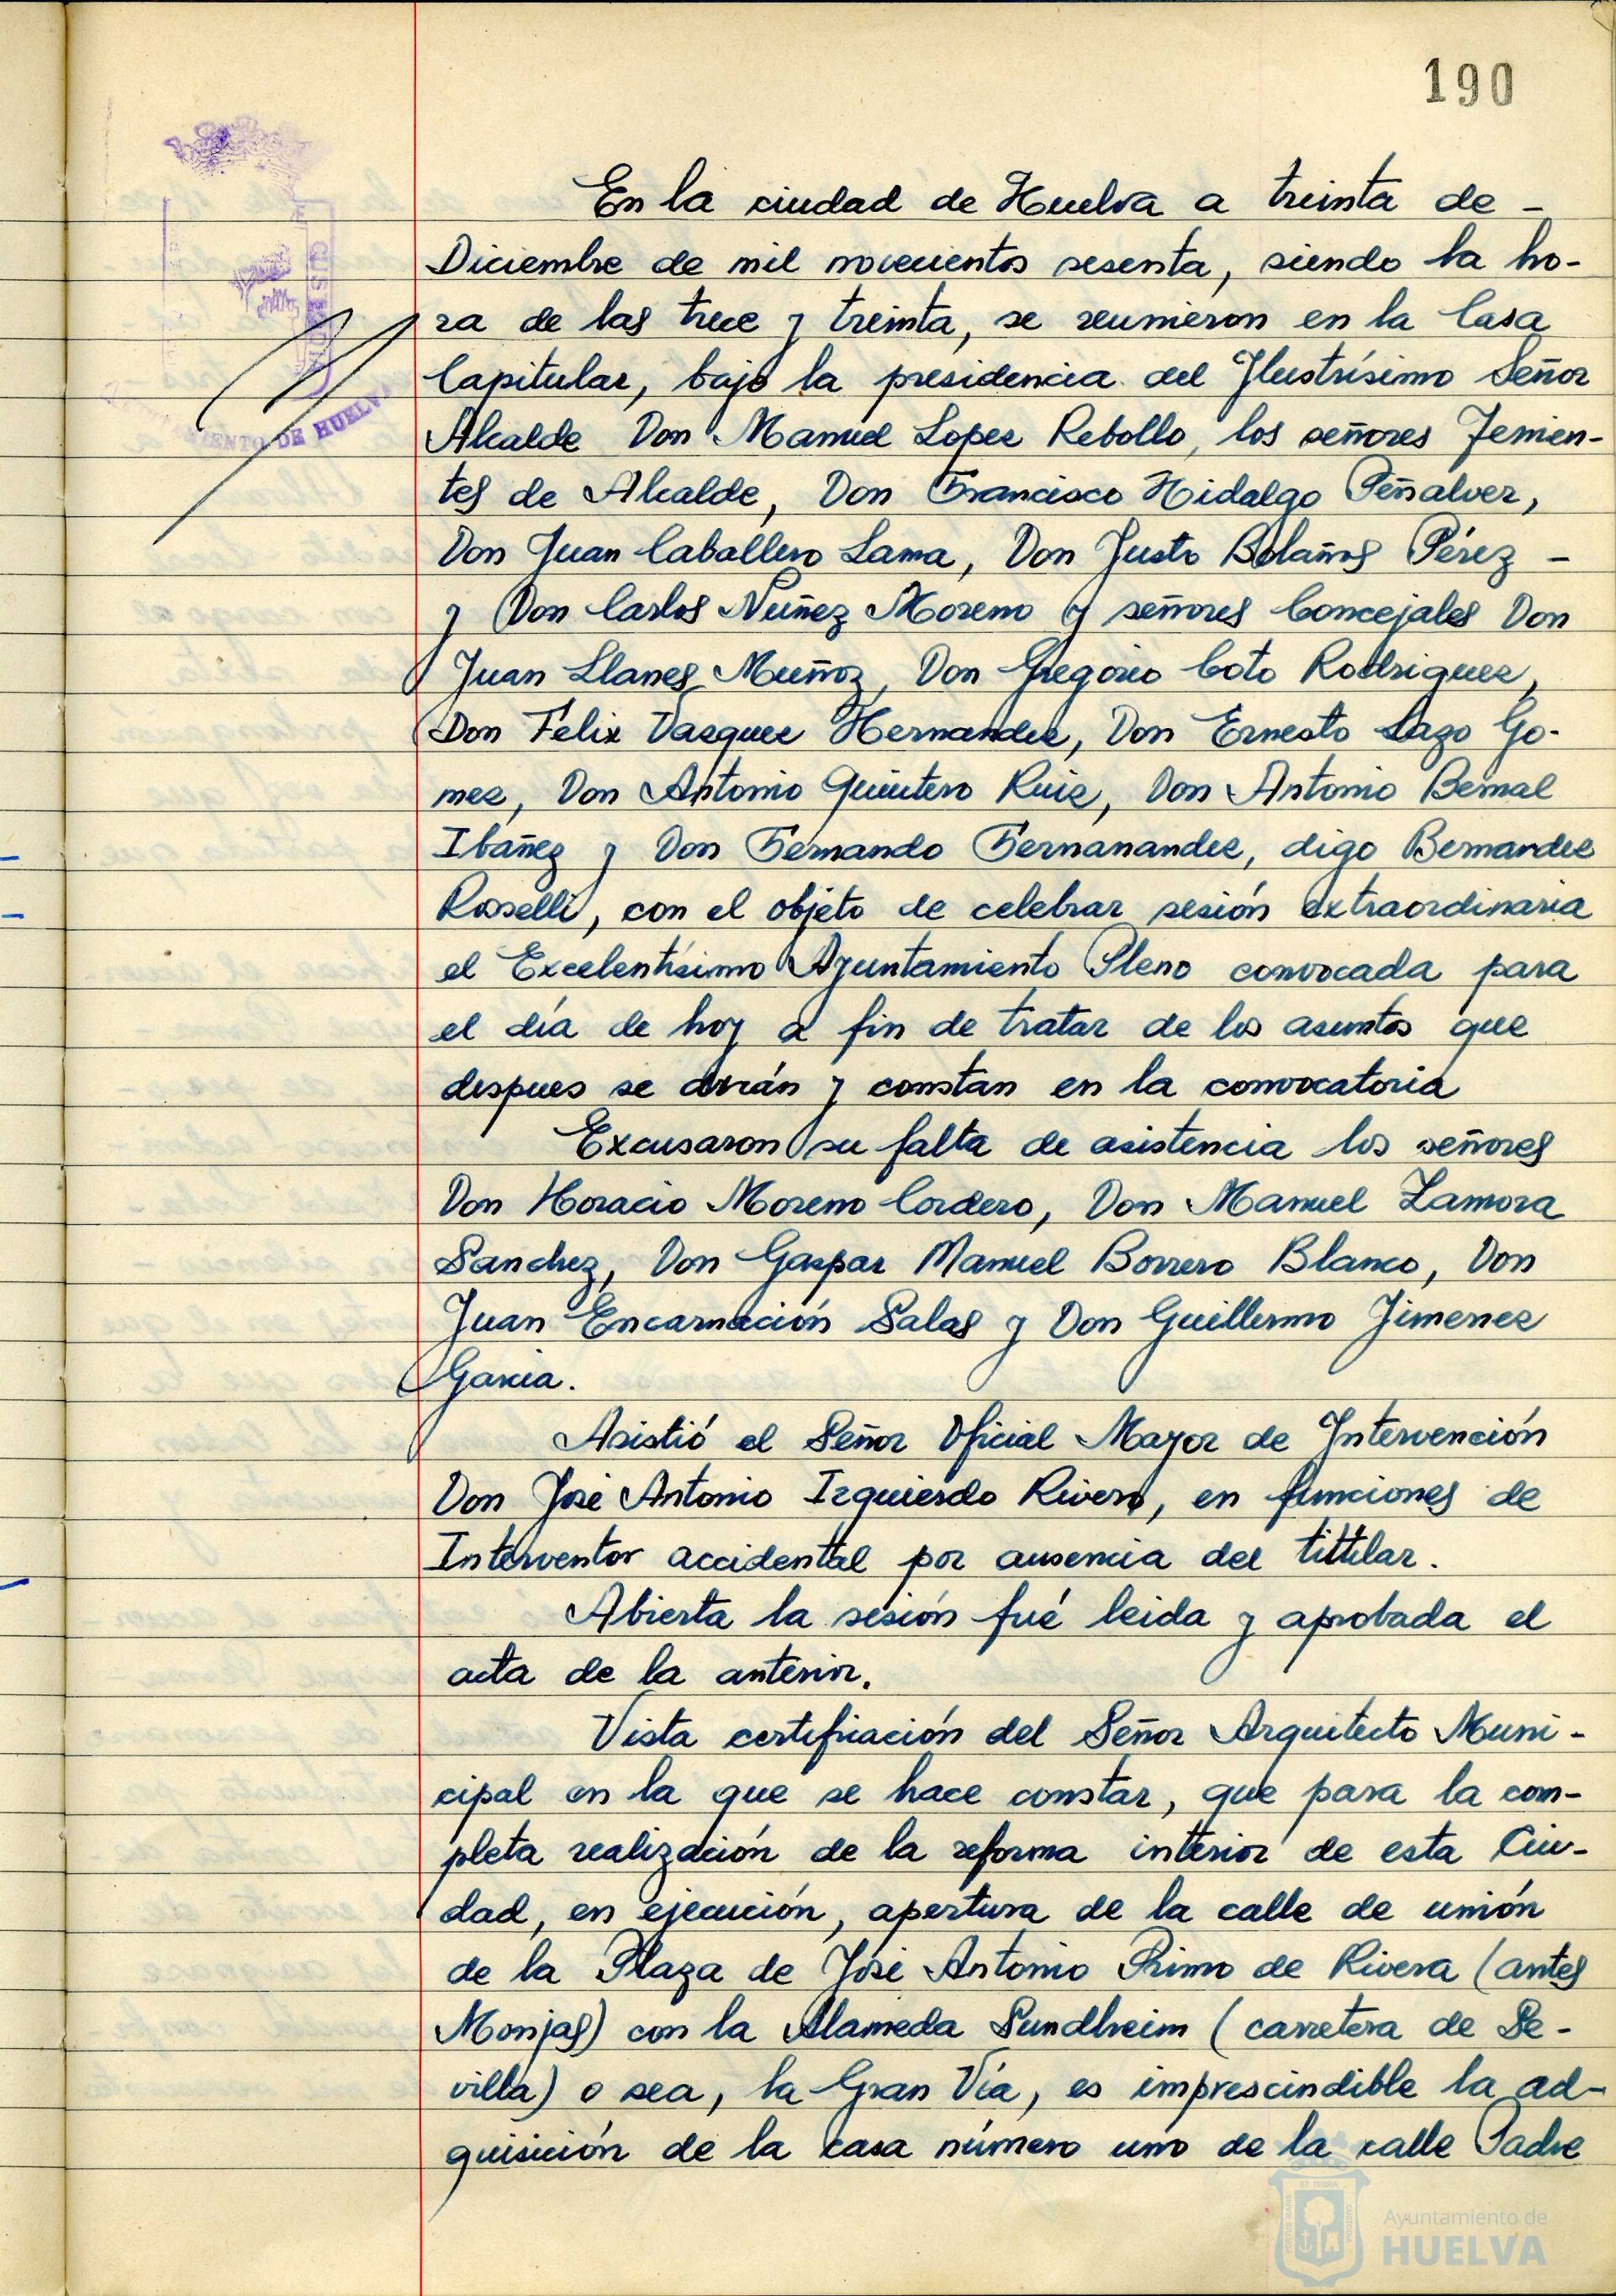 190
En la ciudad de Huelva a treinta de -
Diciembre de mil novecientos sesenta, siendo la ho-
ra de las trece y treinta, se reunieron en la Casa
Capitular, bajo la presidencia del Ilustrísimo Señor
Alcalde Don Manuel Lopez Rebollo, los señores Tenien-
tes de Alcalde, Don Francisco Hidalgo Peñalver,
Don Juan Caballero Lama, Don Justo Bolaños Pérez -
y Don Carlos Nuñez Moreno y señores Concejales Don
Juan Llanes Muñoz, Don Gregorio Coto Rodriguez,
Don Felix Vazquez Hernandez, Don Ernesto Lazo Go-
mez, Don Antonio Quintero Ruiz, Don Antonio Bernal
Ibañez y Don Fernando Fernanandez, digo Bernandez
Roselli, con el objeto de celebrar sesión extraordinaria
el Excelentísimo Ayuntamiento Pleno convocada para
el día de hoy a fin de tratar de los asuntos que
despues se dirán y constan en la convocatoria
Excusaron su falta de asistencia los señores
Don Horacio Moreno Cordero, Don Manuel Zamora
Sanchez, Don Gaspar Manuel Borrero Blanco, Don
Juan Encarnación Salas y Don Guillermo Jimenez
Garcia.
Asistió el Señor Oficial Mayor de Intervención
Don José Antonio Izquierdo Rivero, en funciones de
Interventor accidental por ausencia del tittilar.
Abierta la sesión fué leida y aprobada el
acta de la anterior.
Vista certificación del Señor Arquitecto Muni-
cipal en la que se hace constar, que para la com-
pleta realización de la reforma interior de esta Ciu-
dad, en ejecución, apertura de la calle de unión
de la Plaza de José Antonio Primo de Rivera (antes
Monjas) con la Alameda Sundheim (carretera de Se-
villa) o sea, la Gran Vía, es imprescindible la ad-
quisición de la casa número uno de la calle Padre
DE HUELVA
Ayuntamiento de
HUELVA